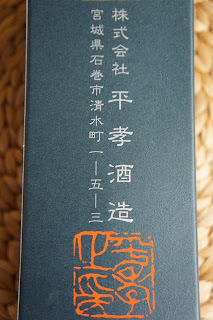 株式会社 平孝酒造
宮城県石巻市清水町一―五―三